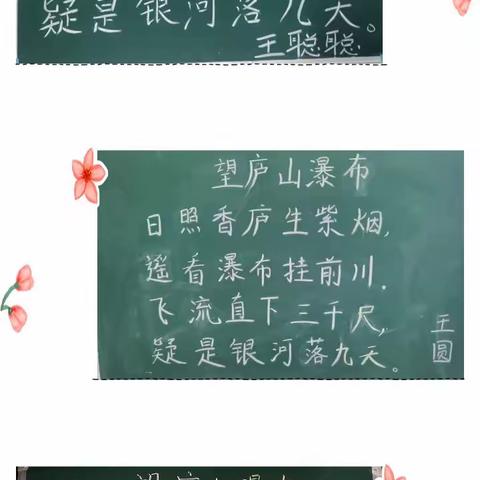 疑是银河落九天。
王聪聪.
望庐山瀑布
日照香庐生紫烟,
遥看瀑布挂前川.
飞流直下三千尺,
疑是银河落九天。
王圆